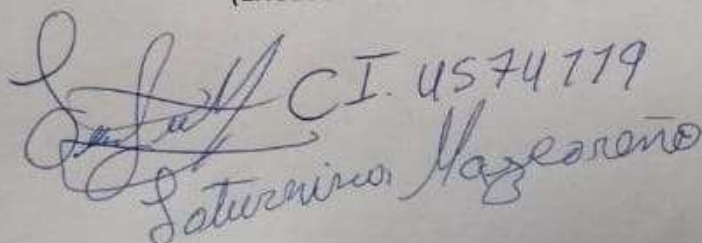 CI. 4574119
Saturnino Mazcoreño